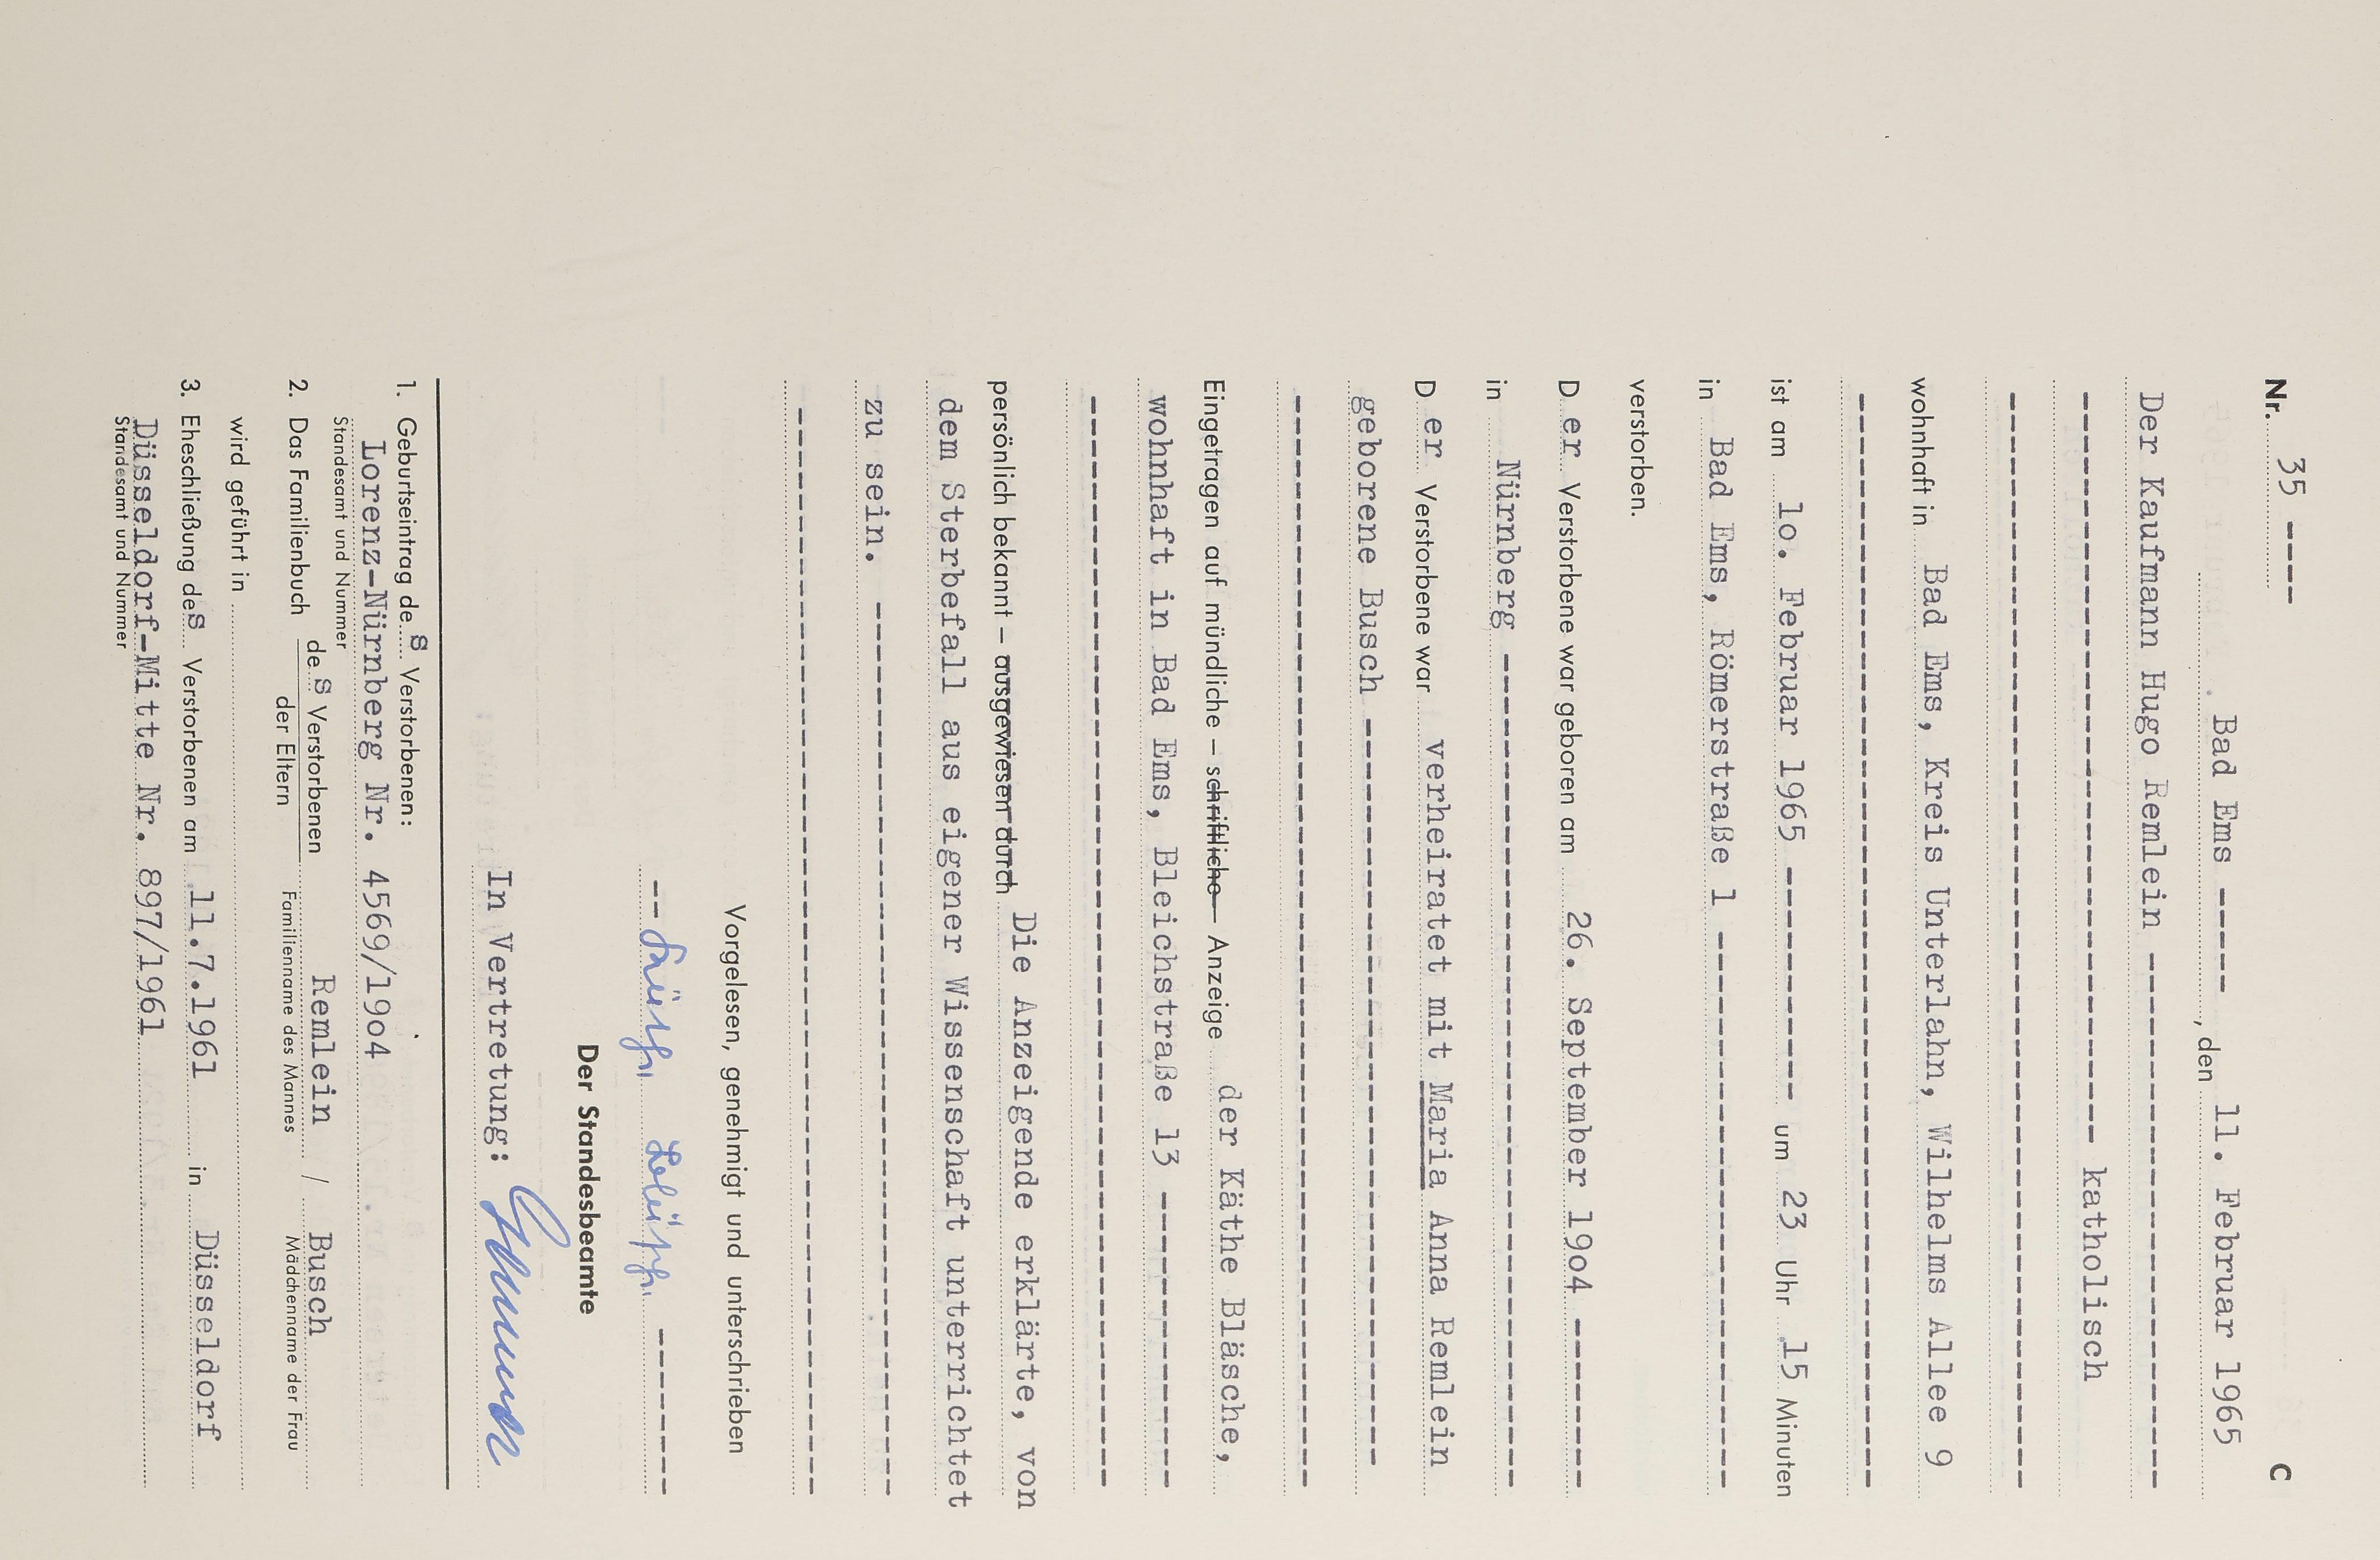 Nr. 35 ---- C
Bad Ems -----, den 11. Februar 1965
Der Kaufmann Hugo Remlein ----------------------
------------------------------ katholisch
--------------------------------------------
wohnhaft in Bad Ems, Kreis Unterlahn, Wilhelms Allee 9
--------------------------------------------
ist am 1o. Februar 1965 --------- um 23 Uhr 15 Minuten
in Bad Ems, Römerstraße 1 -----------------------
verstorben.
D er Verstorbene war geboren am 26. September 19o4 -------
in Nürnberg ----------------------------------
D er Verstorbene war verheiratet mit Maria Anna Remlein
geborene Busch ------------------------------
--------------------------------------------
Eingetragen auf mündliche – schriftliche – Anzeige der Käthe Bläsche,
wohnhaft in Bad Ems, Bleichstraße 13 ------------
--------------------------------------------
persönlich bekannt – ausgewiesen durch Die Anzeigende erklärte, von
dem Sterbefall aus eigener Wissenschaft unterrichtet
zu sein. ------------------------------------
--------------------------------------------
Vorgelesen, genehmigt und unterschrieben
-- -------
Der Standesbeamte
In Vertretung:
1. Geburtseintrag de s Verstorbenen:
Lorenz-Nürnberg Nr. 4569/19o4
Standesamt und Nummer
2. Das Familienbuch de s Verstorbenen Remlein / Busch
der Eltern Familienname des Mannes Mädchenname der Frau
wird geführt in
3. Eheschließung des Verstorbenen am 11.7.1961 in Düsseldorf
Düsseldorf-Mitte Nr. 897/1961
Standesamt und Nummer